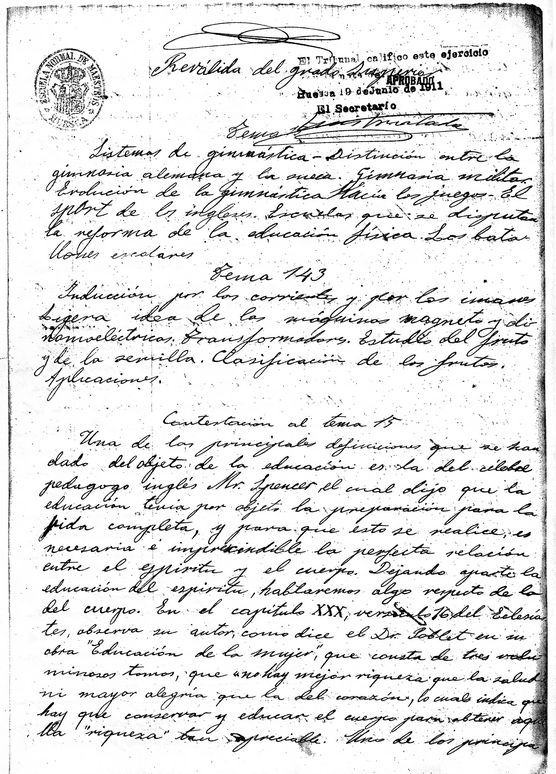 ESCUELA NORMAL DE MAESTROS
HUESCA
El Tribunal califico este ejercicio
APROBADO
Reválida del grado Superior
Huesca 19 de Junio de 1911
El Secretario
Tema
Sistemas de gimnástica - Distinción entre la
gimnasia alemana y la sueca. Gimnasia militar
Evolución de la gimnástica hacia los juegos. El
sport de los ingleses. Escuelas que se disputan
la reforma de la educación física. Los bata
llones escolares
Tema 143
Inducción por las corrientes y por los imanes
Ligera idea de las máquinas magneto y di
namoeléctricas. Transformadores. Estudio del fruto
y de la semilla. Clasificación de los frutos.
Aplicaciones.
Contestación al tema 15
Una de las principales definiciones que se han
dado del objeto de la educación es la del célebre
pedagogo inglés Mr. Spencer el cual dijo que la
educación tenia por objeto la preparación para la
vida completa, y para que esto se realice, es
necesaria é imprescindible la perfecta relación
entre el espiritu y el cuerpo. Dejando aparte la
educación del espiritu, hablaremos algo respecto de la
del cuerpo. En el capitulo XXX, versiculo 16 del Eclesiás
tes, observa su autor, como dice el Dr. Poblet en su
obra "Educación de la mujer", que consta de tres volu
minosos tomos, que "no hay mejor riqueza que la salud
ni mayor alegria que la del corazón, lo cual indica que
hay que conservar y educar el cuerpo para obtener aque
lla "riqueza" tan apreciable. Uno de los principa